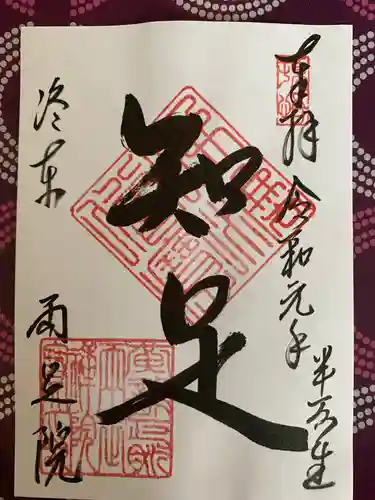 奉拝 令和元年 半夏生
知足
洛東
両足院